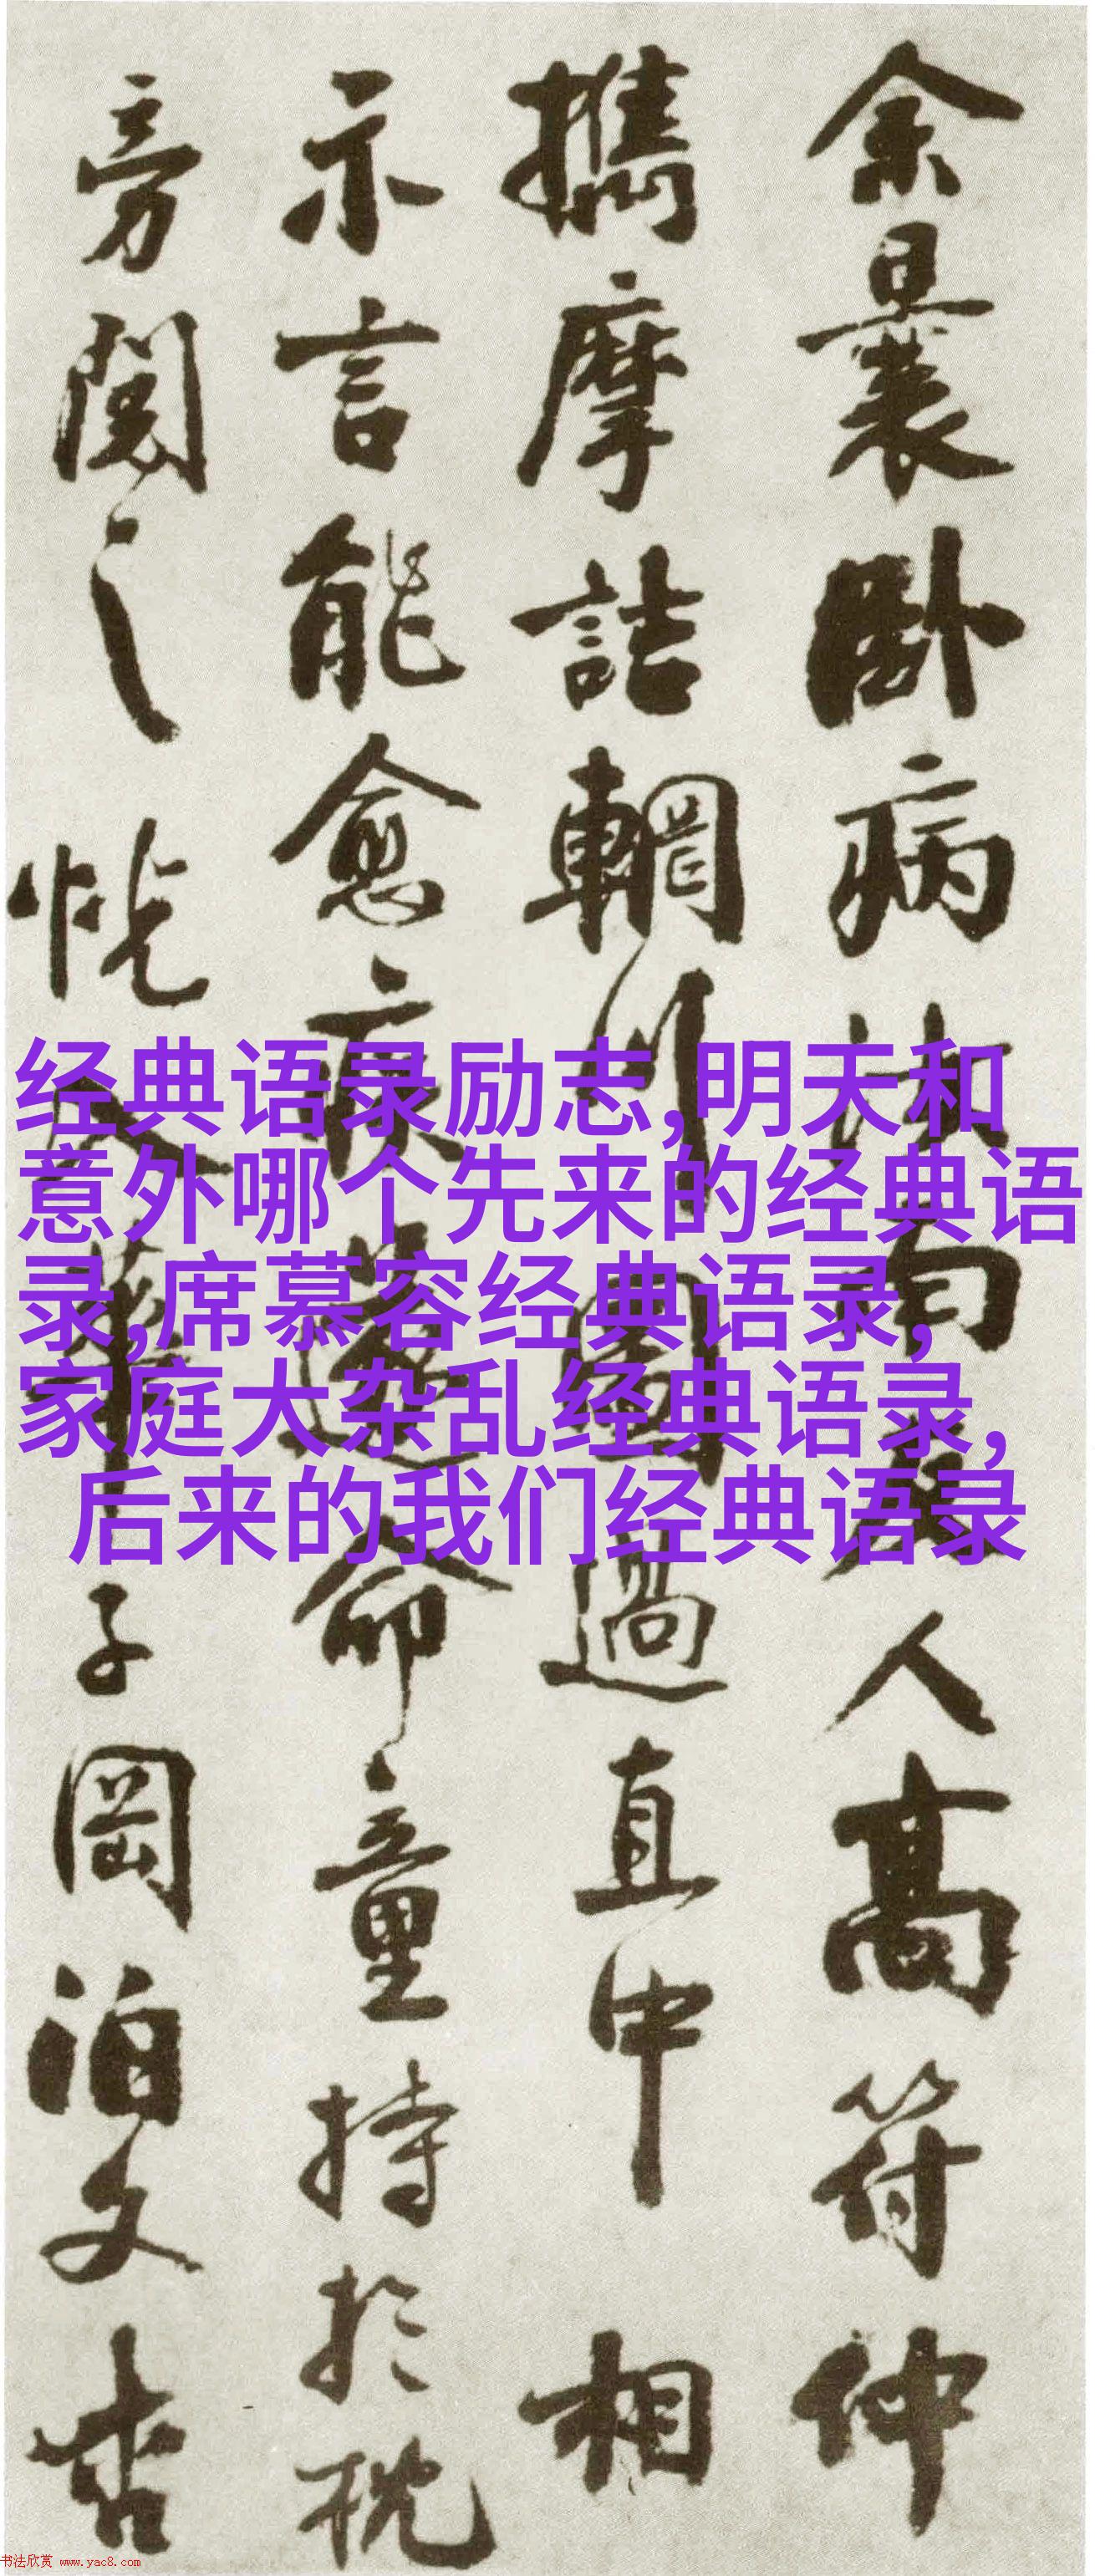 余曩卧病汝南友人高符仲
攜摩詰輞川圖過直中相
示言能愈疾遂命童持於枕
旁閱之恍入華子岡泊文杏
经典语录励志,明天和
意外哪个先来的经典语
录,席慕容经典语录,
家庭大杂乱经典语录,
后来的我们经典语录
书法欣赏 www.yac8.com